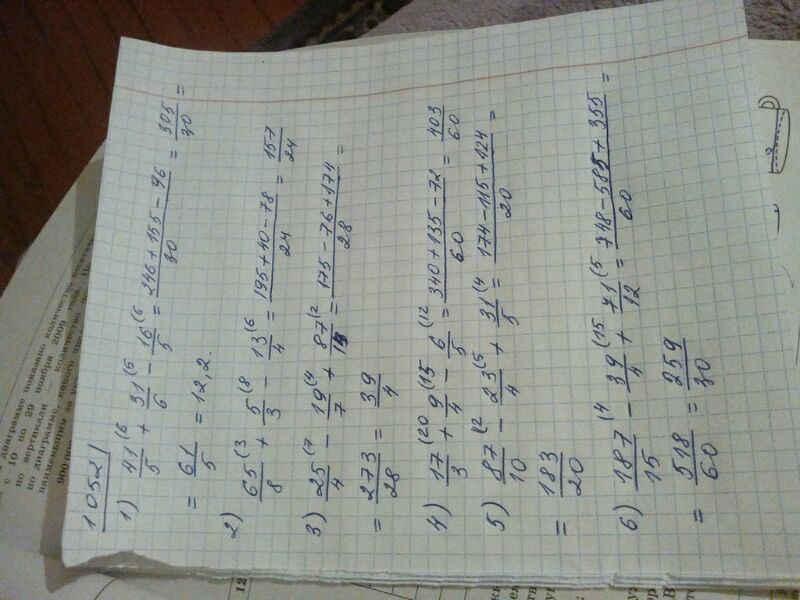 1052
1) 41/5 (6 + 31/6 (5 - 16/5 (6 = (246+155-96)/30 = 305/30 =
= 61/5 = 12,2.
2) 65/8 (3 + 5/3 (8 - 13/4 (6 = (195+40-78)/24 = 157/24
3) 25/4 (7 - 19/7 (4 + 87/14 (2 = (175-76+174)/28 =
= 273/28 = 39/4
4) 17/3 (20 + 9/4 (15 - 6/5 (12 = (340+135-72)/60 = 403/60
5) 87/10 (2 - 23/4 (5 + 31/5 (4 = (174-115+124)/20 =
= 183/20
6) 187/15 (4 - 39/4 (15 + 71/12 (5 = (748-585+355)/60 =
= 518/60 = 259/30
диаграмме показано количество
с 10 по 29 ноября 2009
по вертикали количество
по диаграмме, какого
наименьшим за
900 000
12